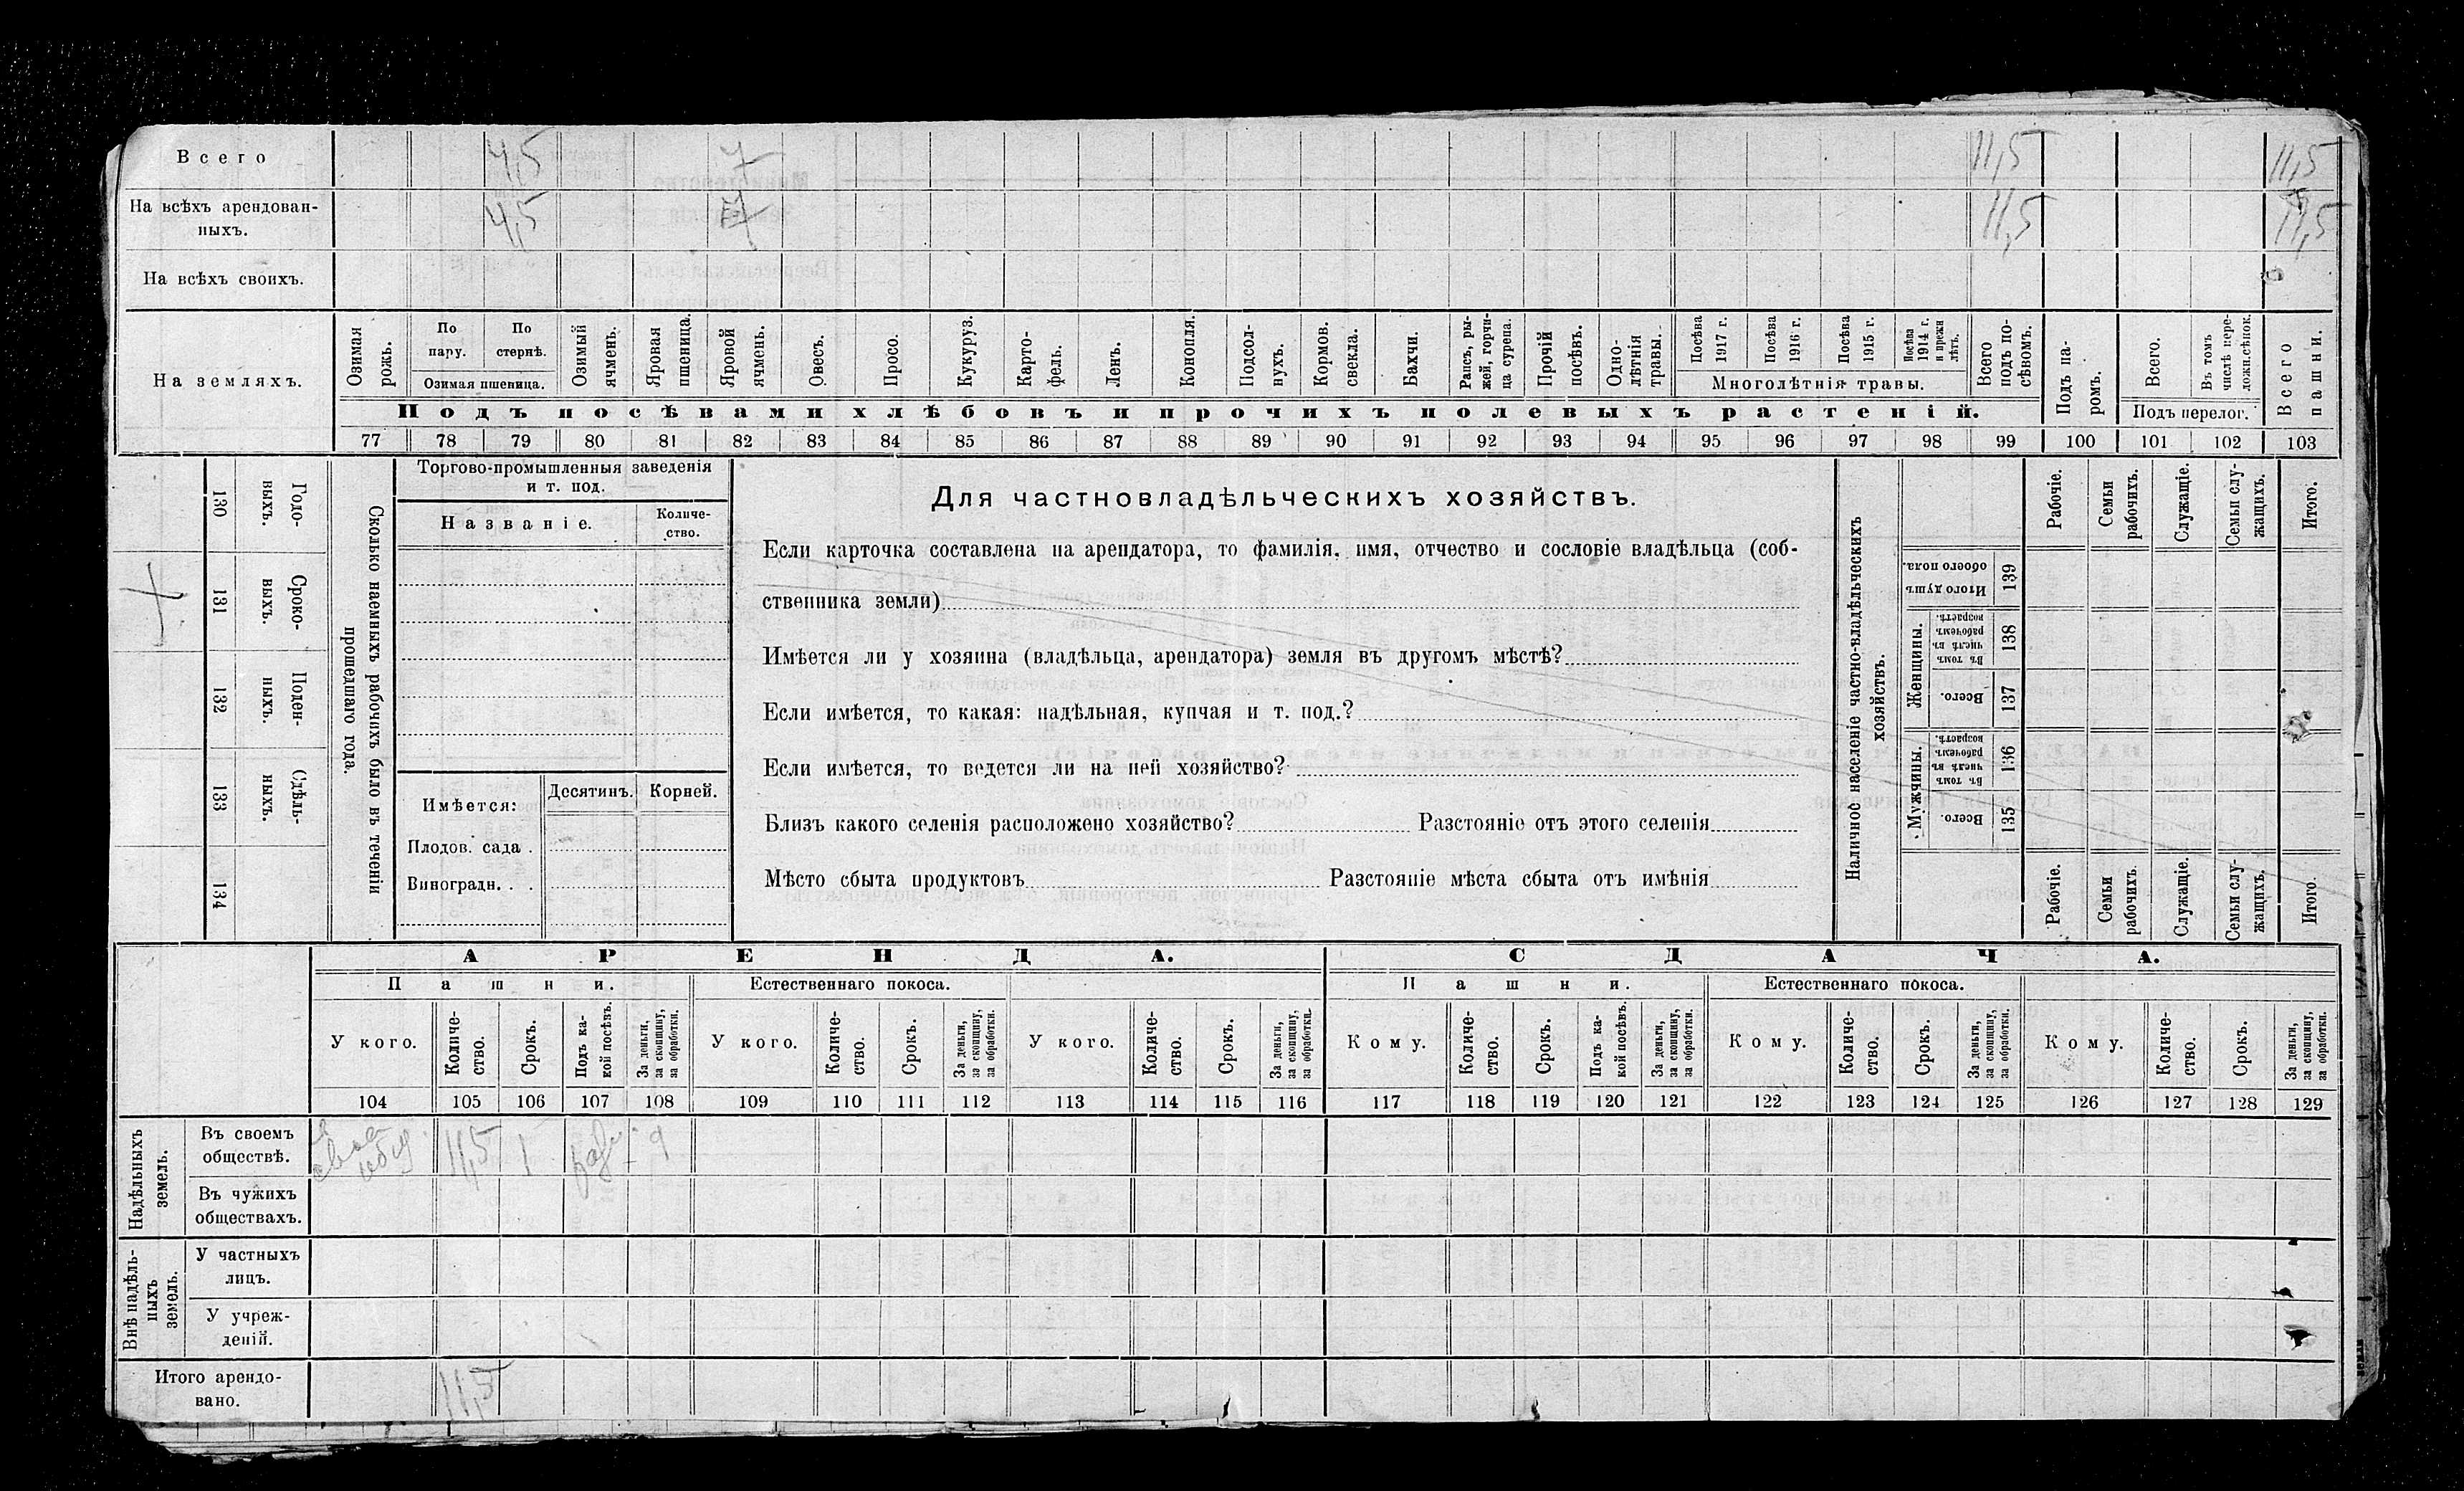 Всего 4,5 7 11,5 11,5
На всѣхъ арендован-
ныхъ. 4,5 7 11,5 11,5
На всѣхъ своихъ.
На земляхъ.
Озимая рожь.
По пару.
По стернѣ.
Озимая пшеница.
Озимый ячмень.
Яровая пшеница.
Яровой ячмень.
Овесъ.
Просо.
Кукуруз.
Карто-
фель.
Ленъ.
Конопля.
Подсол-
нухъ.
Кормов.
свекла.
Бахчи.
Рапсъ, ры-
жей, горчи-
ца сурепа.
Прочій
посѣвъ.
Одно-
лѣтнія
травы.
Посѣва
1917 г.
Посѣва
1916 г.
Посѣва
1915 г.
Посѣва
1914 г.
и прежн
лѣтъ.
Многолѣтнія травы.
Всего
подъ по-
сѣвомъ.
Подъ па-
ромъ.
Всего.
Въ томъ
числѣ пере-
ложн.сѣнок.
Подъ перелог.
Всего
пашни.
Подъ посѣвами хлѣбовъ и прочихъ полевыхъ растеній.
77 78 79 80 81 82 83 84 85 86 87 88 89 90 91 92 93 94 95 96 97 98 99 100 101 102 103
Годо-
выхъ.
130
Сроко-
выхъ.
131
Поден-
ныхъ.
132
Сдѣль-
ныхъ.
133
134
Сколько наемныхъ рабочихъ было въ теченіи
прошедшаго года.
Торгово-промышленныя заведенія
и т. под.
Названіе.
Количе-
ство.
Имѣется:
Десятинъ.
Корней.
Плодов. сада .
Виноградн. . .
Для частновладѣльческихъ хозяйствъ.
Если карточка составлена на арендатора, то фамилія, имя, отчество и сословіе владѣльца (соб-
ственника земли)
Имѣется ли у хозяина (владѣльца, арендатора) земля въ другомъ мѣстѣ?
Если имѣется, то какая: надѣльная, купчая и т. под.?
Если имѣется, то ведется ли на ней хозяйство?
Близъ какого селенія расположено хозяйство? Разстояніе отъ этого селенія
Мѣсто сбыта продуктовъ Разстояніе мѣста сбыта отъ имѣнія
Наличное населеніе частно-владѣльческихъ
хозяйствъ.
Рабочіе.
Семьи
рабочихъ.
Служащіе.
Семьи слу-
жащихъ.
Итого.
Итого душъ
обоего пола.
139
Женщины.
Въ томъ
числѣ въ
рабочемъ
возрастѣ.
138
Всего.
137
Мужчины.
Въ томъ
числѣ въ
рабочемъ
возрастѣ.
136
Всего.
135
Рабочіе.
Семьи
рабочихъ.
Служащіе.
Семьи слу-
жащихъ.
Итого.
АРЕНДА. СДАЧА.
Пашни. Естественнаго покоса. Пашни. Естественнаго покоса.
У кого.
Количе-
ство.
Срокъ.
Подъ ка-
кой посѣвъ.
За деньги,
за скопщину,
за обработки.
У кого.
Количе-
ство.
Срокъ.
За деньги,
за скопщину,
за обработки.
У кого.
Количе-
ство.
Срокъ.
За деньги,
за скопщину,
за обработки.
Кому.
Количе-
ство.
Срокъ.
Подъ ка-
кой посѣвъ.
За деньги,
за скопщину,
за обработки.
Кому.
Количе-
ство.
Срокъ.
За деньги,
за скопщину,
за обработки.
Кому.
Количе-
ство.
Срокъ.
За деньги,
за скопщину,
за обработки.
104 105 106 107 108 109 110 111 112 113 114 115 116 117 118 119 120 121 122 123 124 125 126 127 128 129
Надѣльныхъ
земель.
Въ своемъ
обществѣ. 11,5 1
Въ чужихъ
обществахъ.
Внѣ надѣль-
ныхъ
земель.
У частныхъ
лицъ.
У учреж-
деній.
Итого арендо-
вано. 11,5